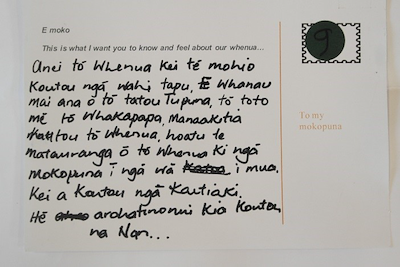 E moko
This is what I want you to know and feel about our whenua...
Anei tō Whenua Kei tē mohio
Koutou ngā wahi tapu, E Whanau
mai ana ō tō tatou Tupuna, tō toto
mē tō Whakapapa, Manaakitia
Koutou tō Whenua, hoatu te
mātauranga ō tō Whenua ki ngā
Mokopuna i ngā wā i mua.
Kei a Koutou ngā Kaitiaki.
Hē arohatinonui Kia Koutou
na Nan...
9
To my
mokopuna